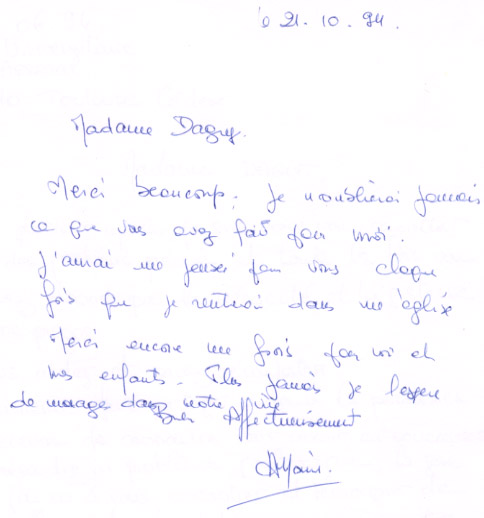 le 21.10.94.
Madame Dagry.
Merci beaucoup. Je n'oublierai jamais
ce que vous avez fait pour moi.
J'aurai une pensée pour vous chaque
fois que je rentrerai dans une église
Merci encore une fois pour moi et
mes enfants. Plus jamais je l'espère
de nuages dans notre vie
Bien Affectueusement